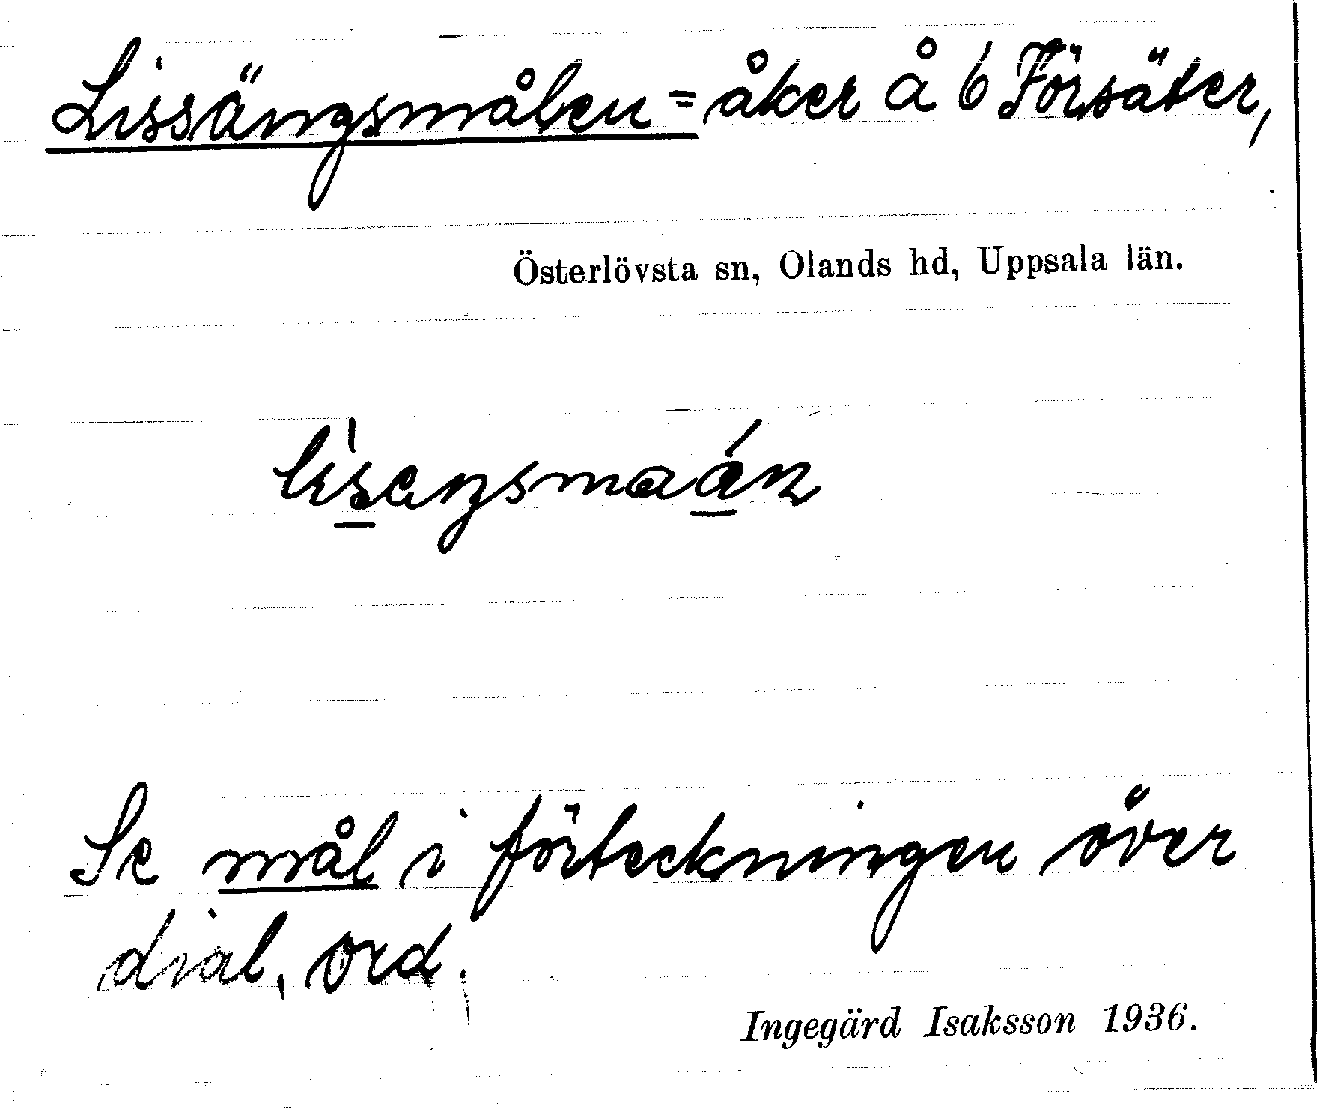 Lissängsmålen = åker å 6 Försäter,
Österlövsta sn, Olands hd, Uppsala län.
Se mål i förteckningen över
dial. ord.
Ingegärd Isaksson 1936.